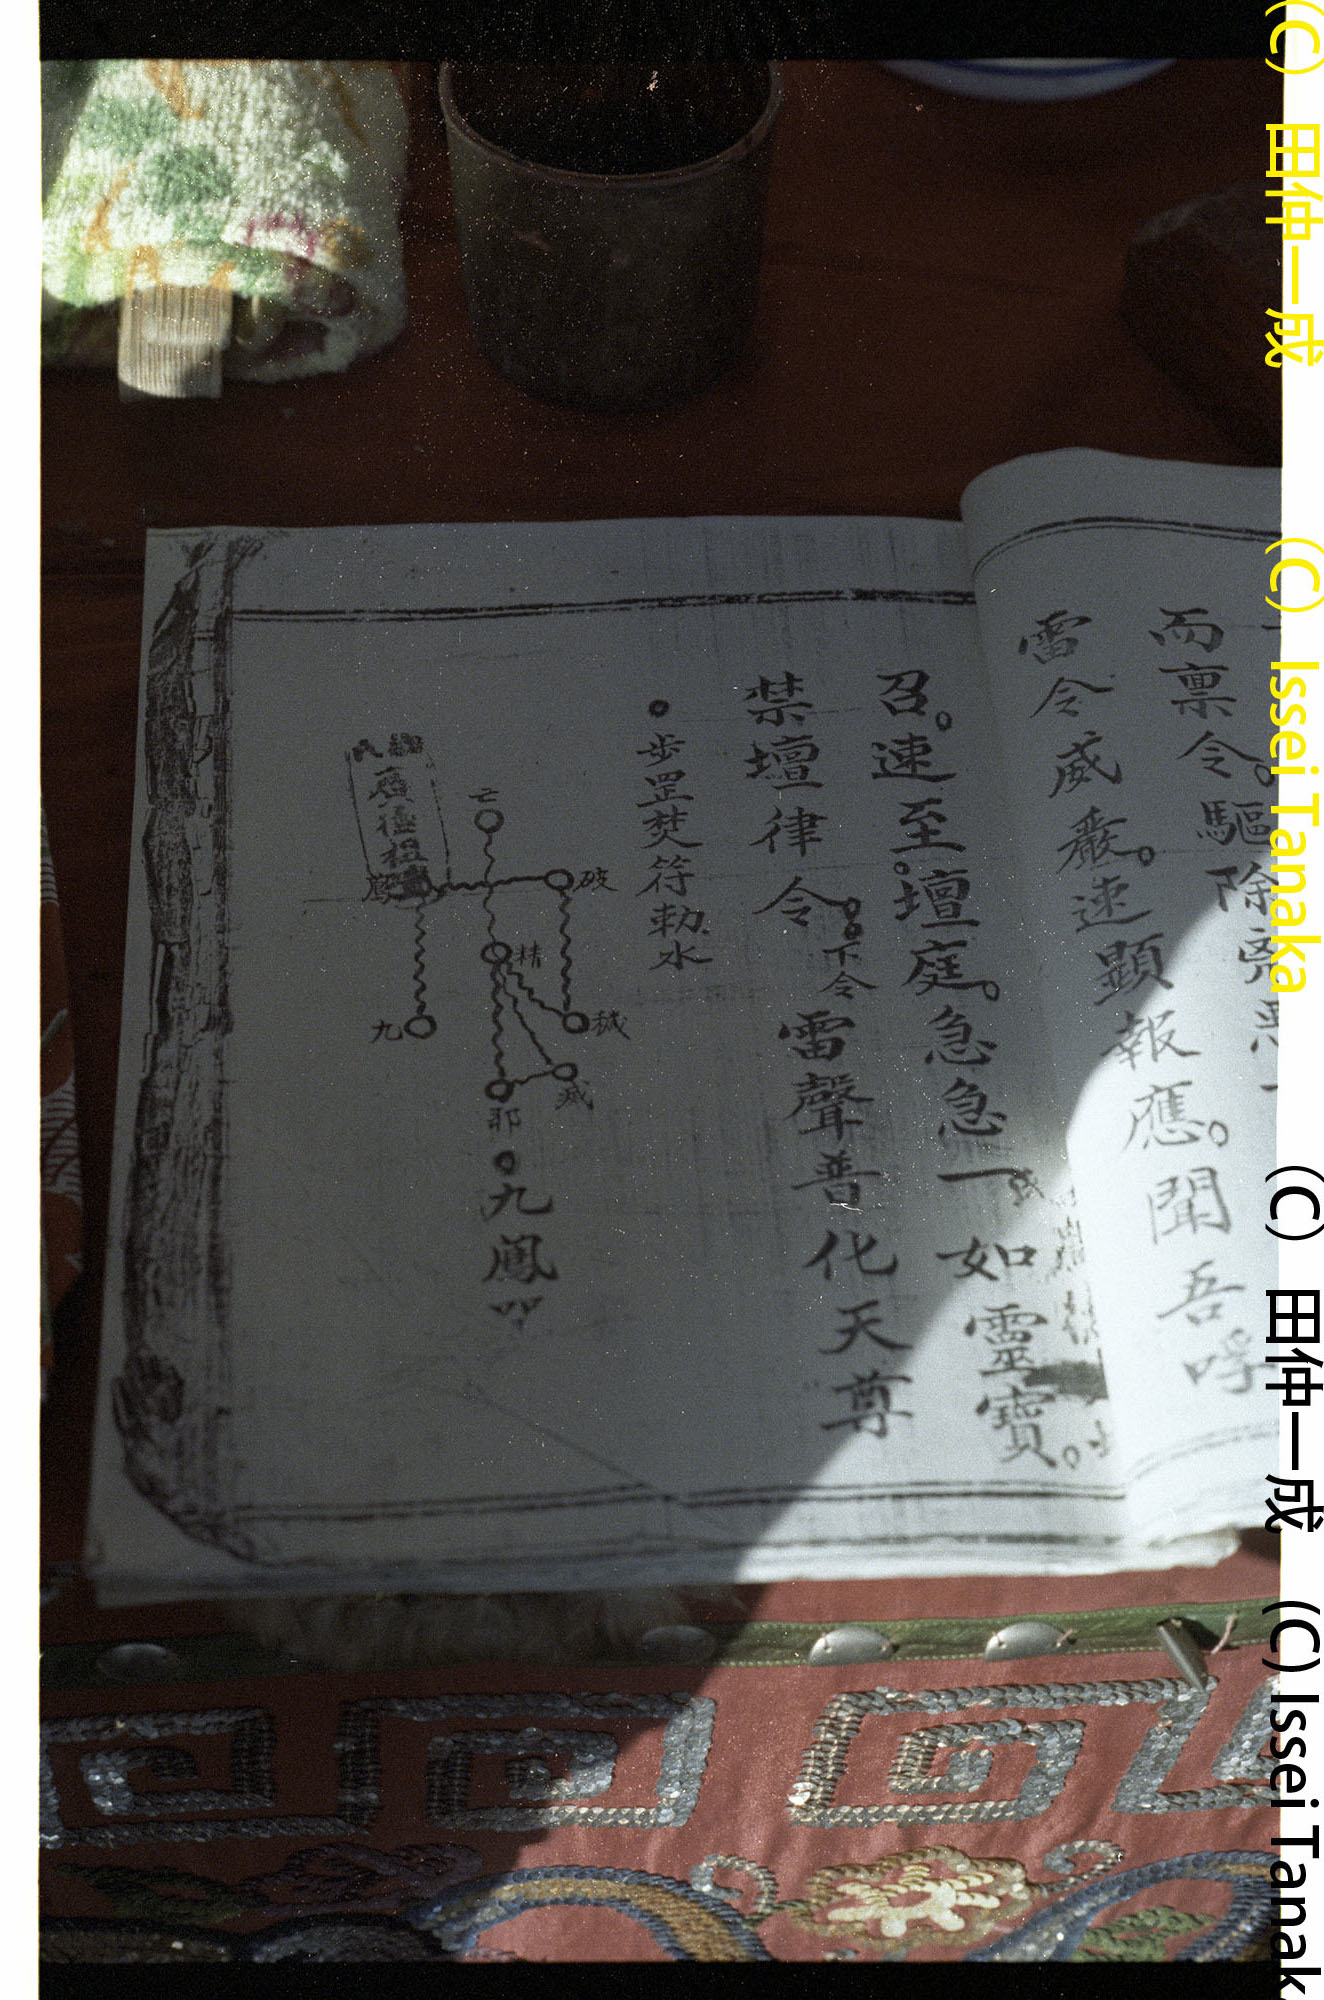 而禀令。驅除
雷令威嚴。速顕報應。聞吾呼
召。速至。壇庭。急急一如靈寶。
禁壇律令。下令雷聲普化天尊
步罡焚符勅水
亡
破
精
穢
九
滅
耶
九鳳吅
(C) 田仲一成
(C) Issei Tanaka
(C) 田仲一成
(C) Issei Tanak